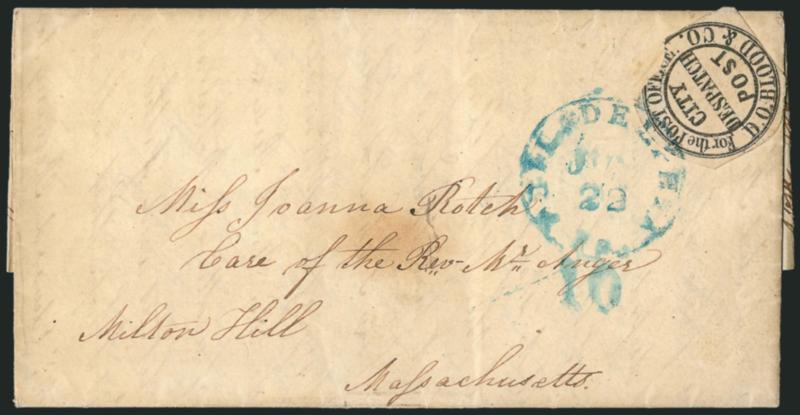 D.O. BLOOD & CO.
For the POST OFFICE.
CITY
DESPATCH
POST
PHILADELPHIA
22
Pa.
10
Miss Joanna Rotch
Care of the Revᵈ Mʳ Anger
Milton Hill
Massachusetts.